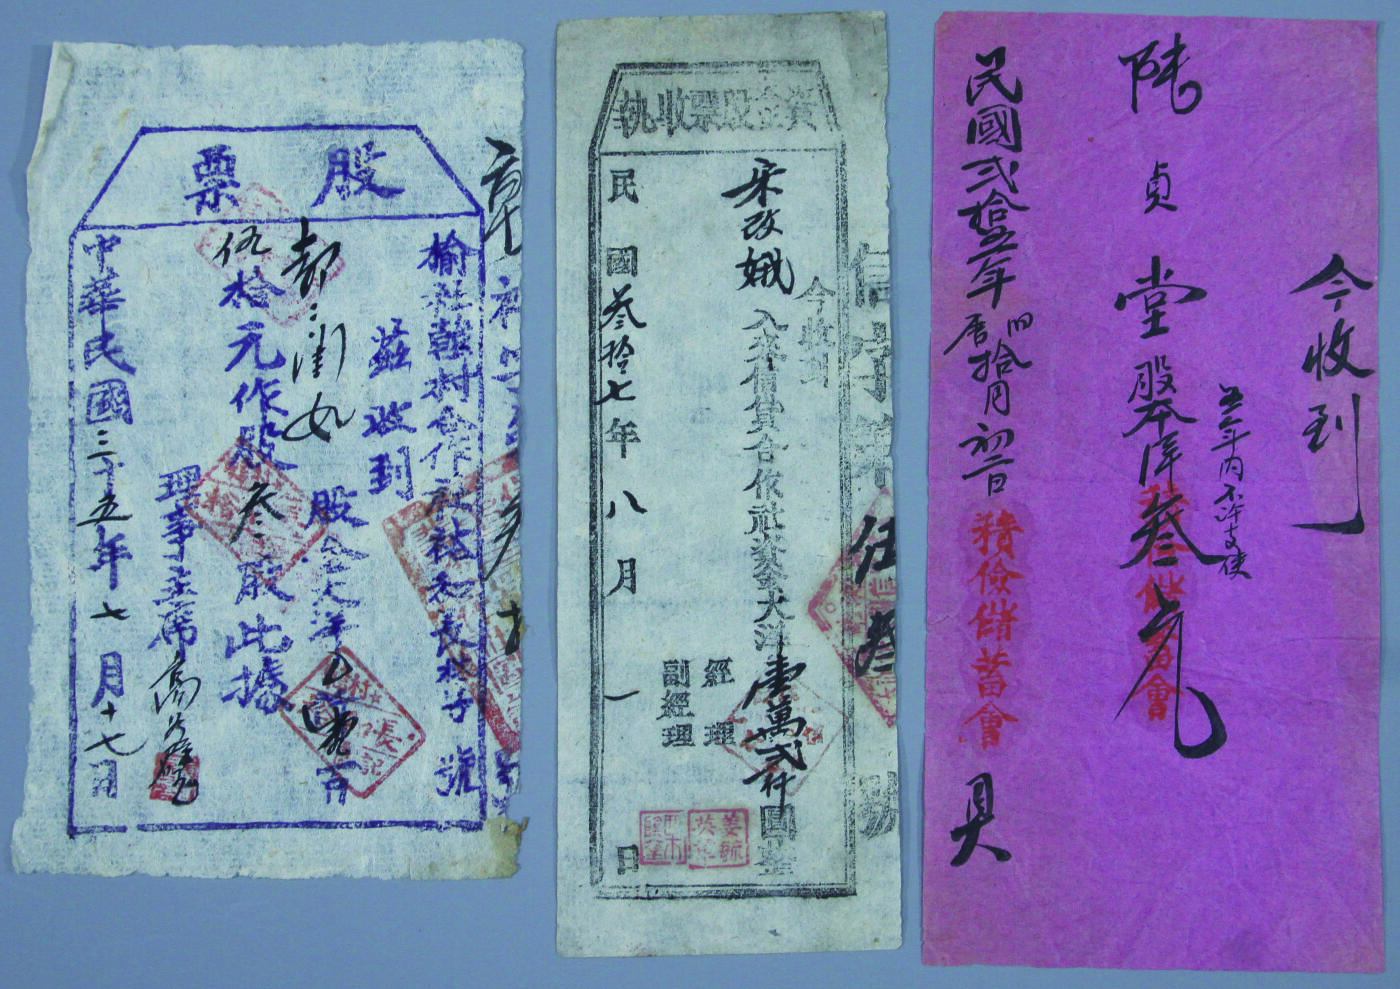 股票
榆社韓村合作社社和長社字 號
茲收到
股金大洋 百
伍拾元作股叁股此據
理事主席
中華民國三十五年七月十七日
資金股票收執
信字第伍叁號
今收到
宋改娥入本信貸合作社資金大洋壹萬貳仟圓整
經理
副經理
民國叁拾七年八月一日
今收到
五年内不許支使
陸貞堂股本洋叁元
民國貳拾五年旧曆拾月初一日精儉儲蓄會具